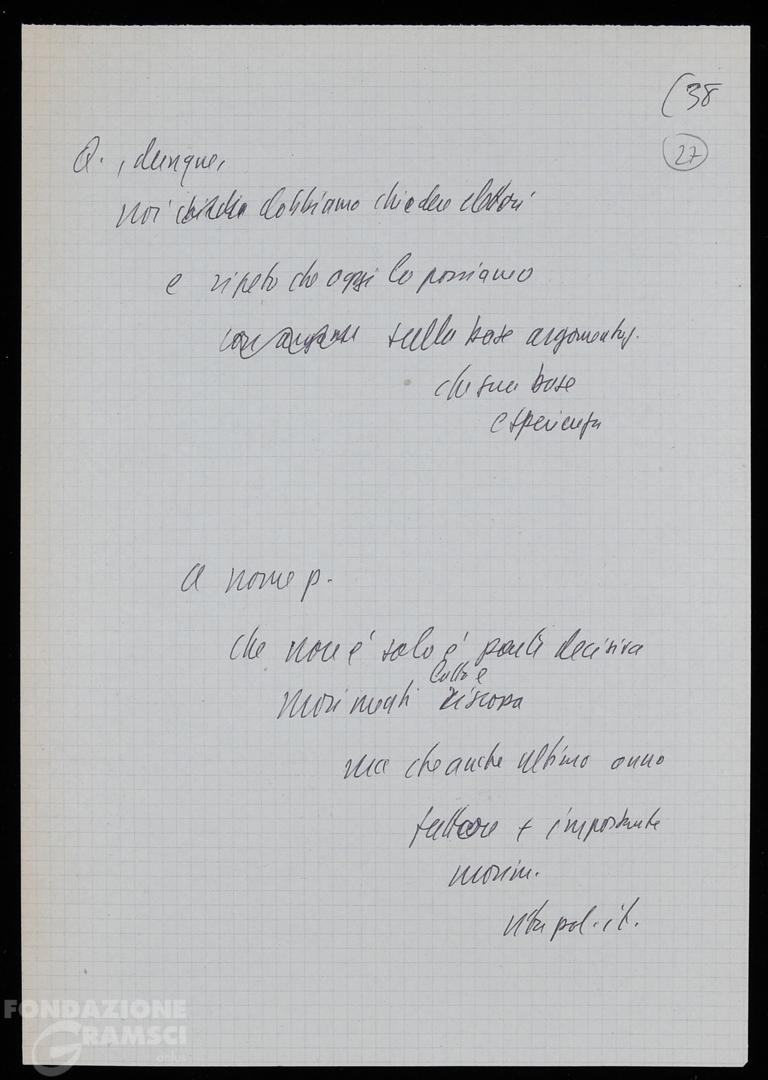 (38
27
Q., dunque,
noi dobbiamo chiedere elettori
e ripeto che oggi lo possiamo
sulla base argomentaz.
che sua base
esperienza
A nome p.
che non è solo è parte decisiva
lotta e
movimenti riscossa
ma che anche ultimo anno
fattore + importante
movim.
vita pol. it.
FONDAZIONE
GRAMSCI
onlus